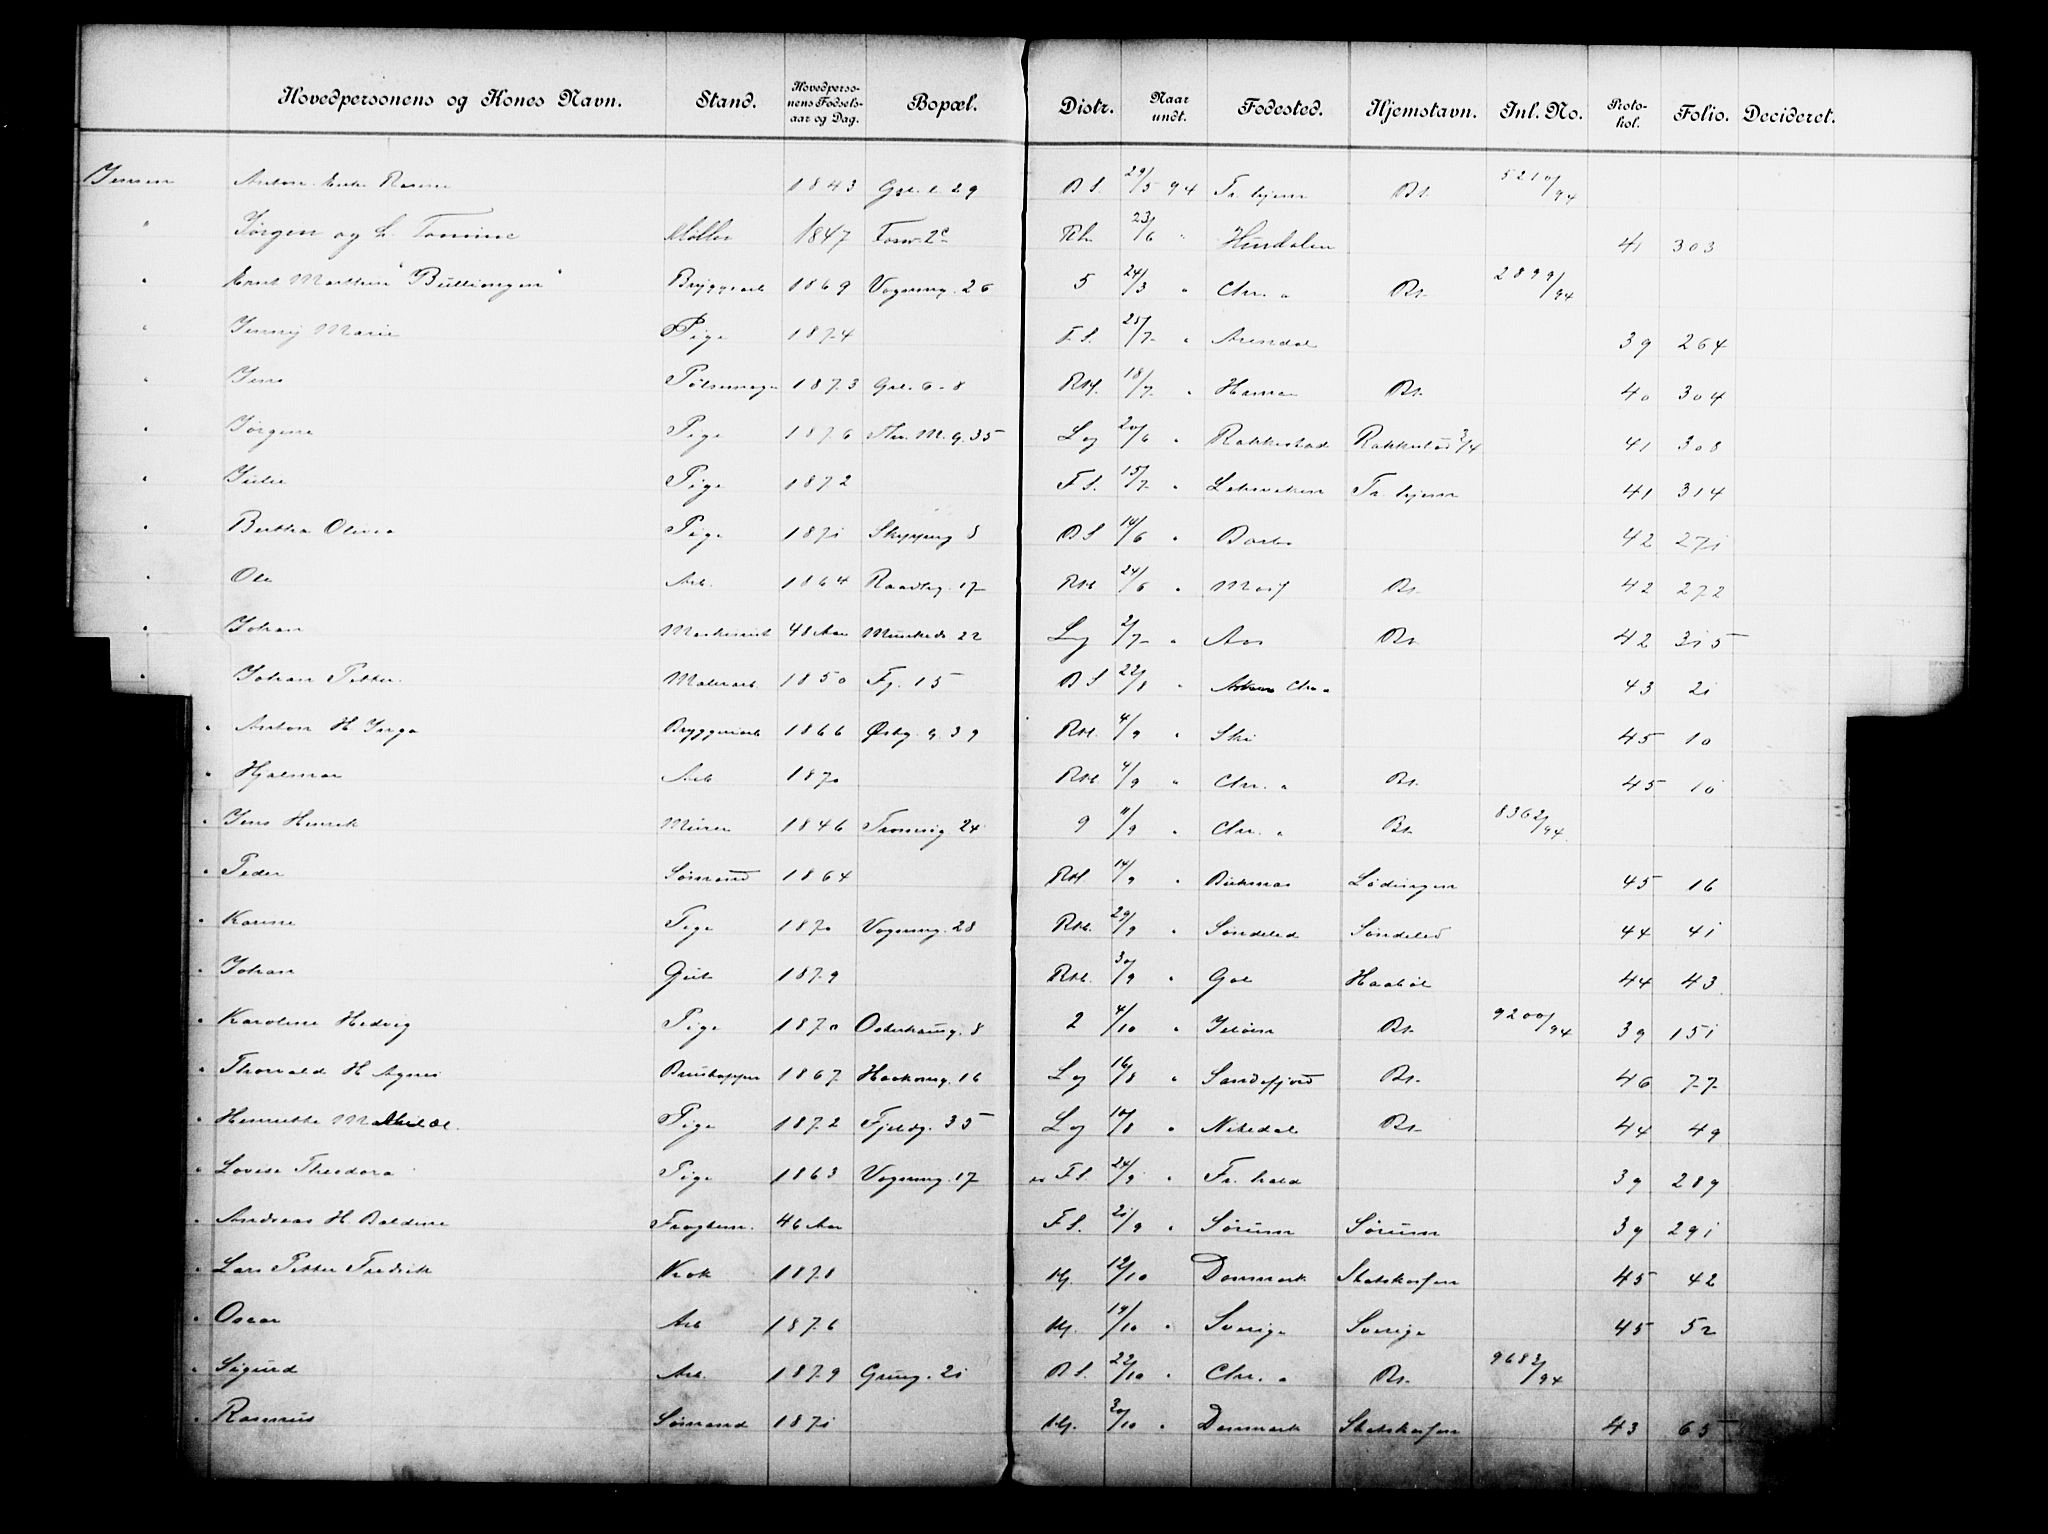 Hovedpersonens og Kones Navn. Stand. Hovedpersonens Fødselsaar og Dag. Bopæl. Distr. Naar undt. Fødested. Hjemstavn. Inl. No. Protokol. Folio. Decideret.
Jensen Anton 1843 29 B S. 29/5 94 Tr. hjem Bt. 5210/94
" Jørgen og h. Tomine Møller 1847 Rh. 23/6 " Hurdalen 41 303
" Ernst Marthin "Bullungen" Bryggeriarb 1869 Vognmg. 26 5 24/3 " Chr. a Bt. 2899/94
" Jenny Marie Pige 1874 F. S. 28/7 " Arendal 39 264
" Jens Pølsemager 1873 6-8 RH. 18/7 " Hamar Bt. 40 304
" Jørgine Pige 1876 Thv. M. g. 35 Lg 20/6 " Rakkestad Rakkestad 3/4 41 308
" Julie Pige 1872 F S. 15/7 " Leksviken Tr. hjem 41 314
" Bertha Olivia Pige 1871 Skipperg 8 B S 14/6 " Borre 42 271
" Ole Arb. 1864 Raadhg. 17 RH. 24/6 " Moss Bt. 42 272
" Johan Maskinist 48 Aar Munkeds 22 Lg 2/7 " Aas Bt. 42 315
" Johan Petter Malerarb. 1850 Fg. 15 B S 22/8 " Asker Chr a 43 21
" Anton H Inga Bryggeriarb 1866 Østby. g. 39 RH. 4/9 " Ski 45 10
" Hjalmar Arb 1870 RH. 4/9 " Chr. a Bt. 45 10
" Jens Henrik Murer 1846 Tromsøg 24 9 11/9 " Chr. a Bt. 8362/94
" Peder Sømand 1864 RH. 14/9 " Lødingen 45 16
" Karine Pige 1870 Vognmg. 28 RH. 29/9 " Søndeled Søndeled 44 41
" Johan Gut 1879 RH. 30/9 " Gol Haabøl 44 43
" Karoline Hedvig Pige 1870 Osterhausg. 8 2 4/10 " Jeløen Bt. 9200/94 39 151
" Thorvald H Agnes Brustapper 1867 Haakonsg. 16 Lg 16/8 " Sandefjord Bt. 46 77
" Henriette Mathilde Pige 1872 Fjeldg. 35 Lg 10/8 " Nitedal Bt. 44 49
" Lovise Theodora Pige 1863 Vognmg. 17 F S. 24/9 " Fr. hald 39 289
" Andreas H Baldine 46 Aar F S. 21/9 " Sørum Sørum 39 291
" Lars Petter Fredrik Kok 1871 Hj. 12/10 Danmark Statskassen 45 42
" Oscar Arb 1876 Hj. 19/10 " Sverige Sverige 45 52
" Sigurd Arb. 1879 Grung. 21 B S. 22/10 " Chr. a Bt. 9682/94
" Rasmus Sømand 1871 Hj. 30/10 " Danmark Statskassen 43 65